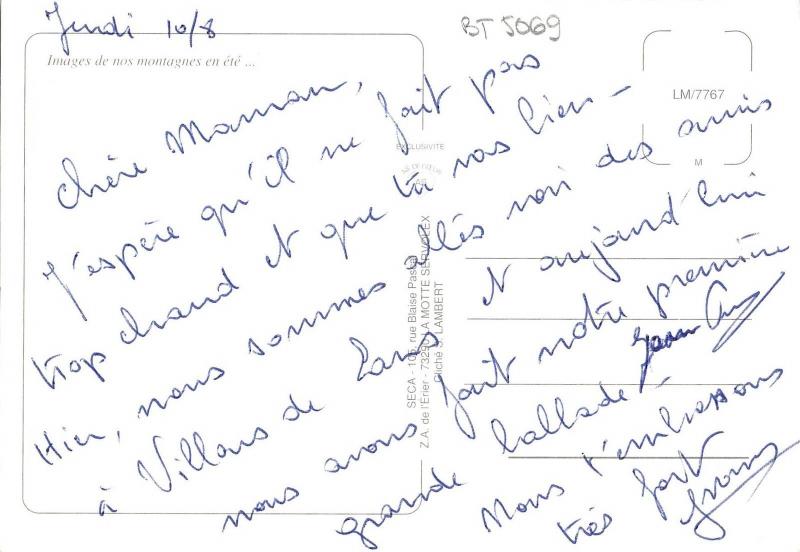 Jeudi 10/8
BT 5069
Images de nos montagnes en été ...
LM/7767
M
EXCLUSIVITÉ
SECA - 105, rue Blaise Pascal
Z.A. de l'Erier - 73290 LA MOTTE SERVOLEX
Cliché S. LAMBERT
Chère Maman,
J'espère qu'il ne fait pas
trop chaud et que tu vas bien -
Hier, nous sommes allés voir des amis
à Villars de Lans et aujourd'hui
nous avons fait notre première
grande ballade -
Nous t'embrassons
très fort